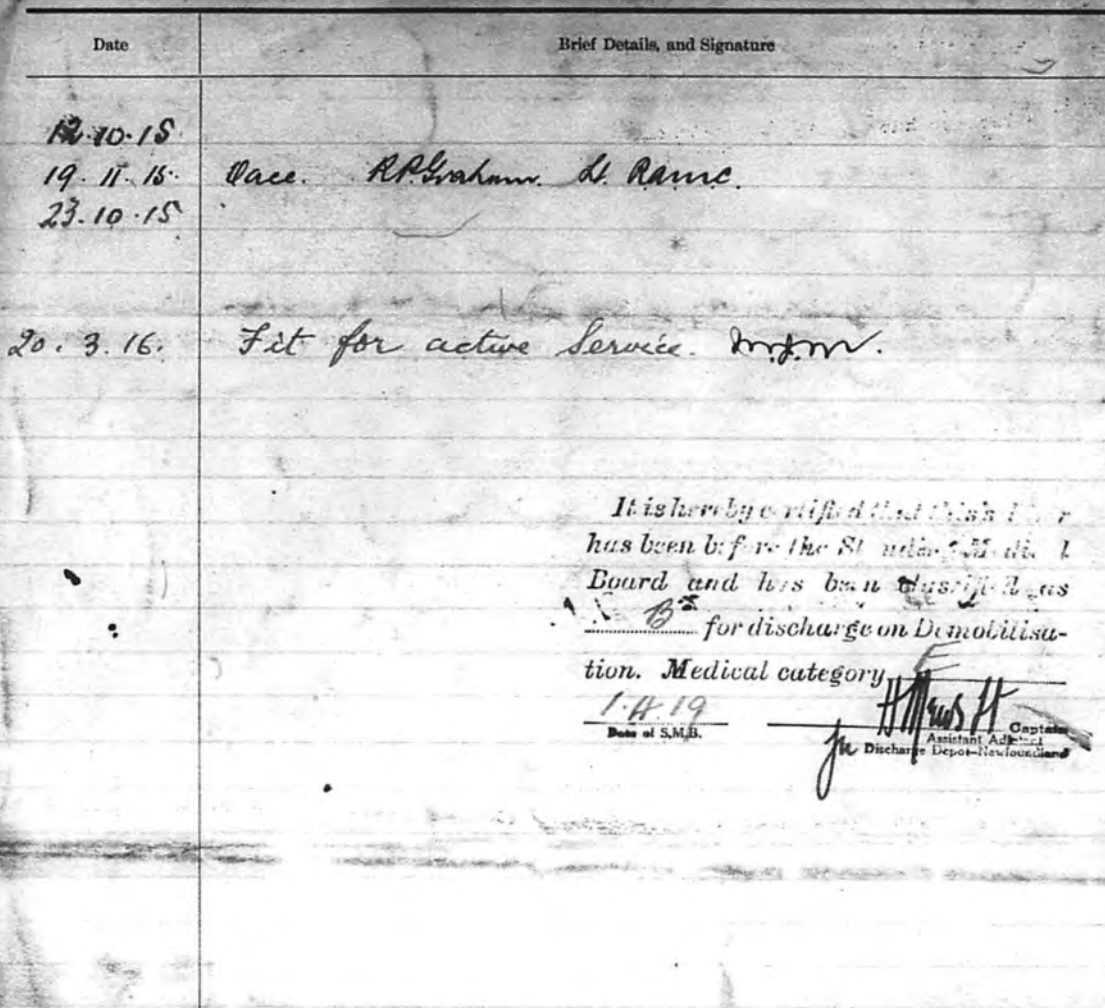 Date Brief Details, and Signature
12.10.15
19.11.15. Vacc. R.P. Graham. Lt. RAMC.
23.10.15
20.3.16. Fit for active Service.
It is hereby certified that this
has been before the Standing Medical
Board and has been classified as
B for discharge on Demobilisa-
tion. Medical category E
Date of S.M.B.
Captain
Assistant Adjutant
for Discharge Depot—Newfoundland